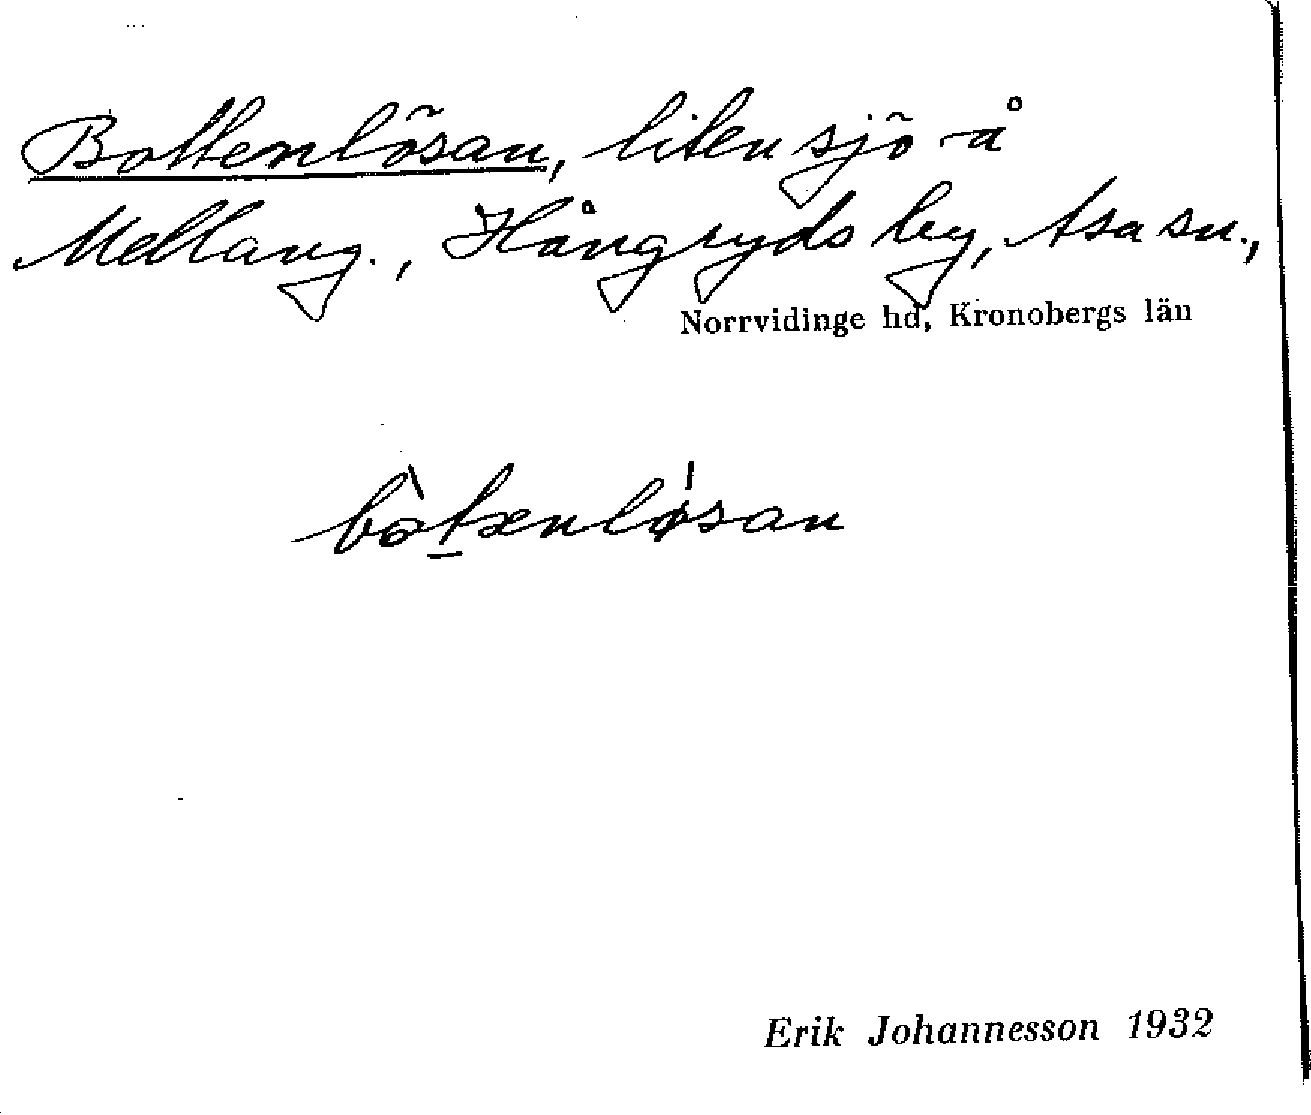 Bottenlösan, liten sjö å
Mellang., Hångryds by, Asa sn.,
Norrvidinge hd, Kronobergs län
bòtænløsan
Erik Johannesson 1932